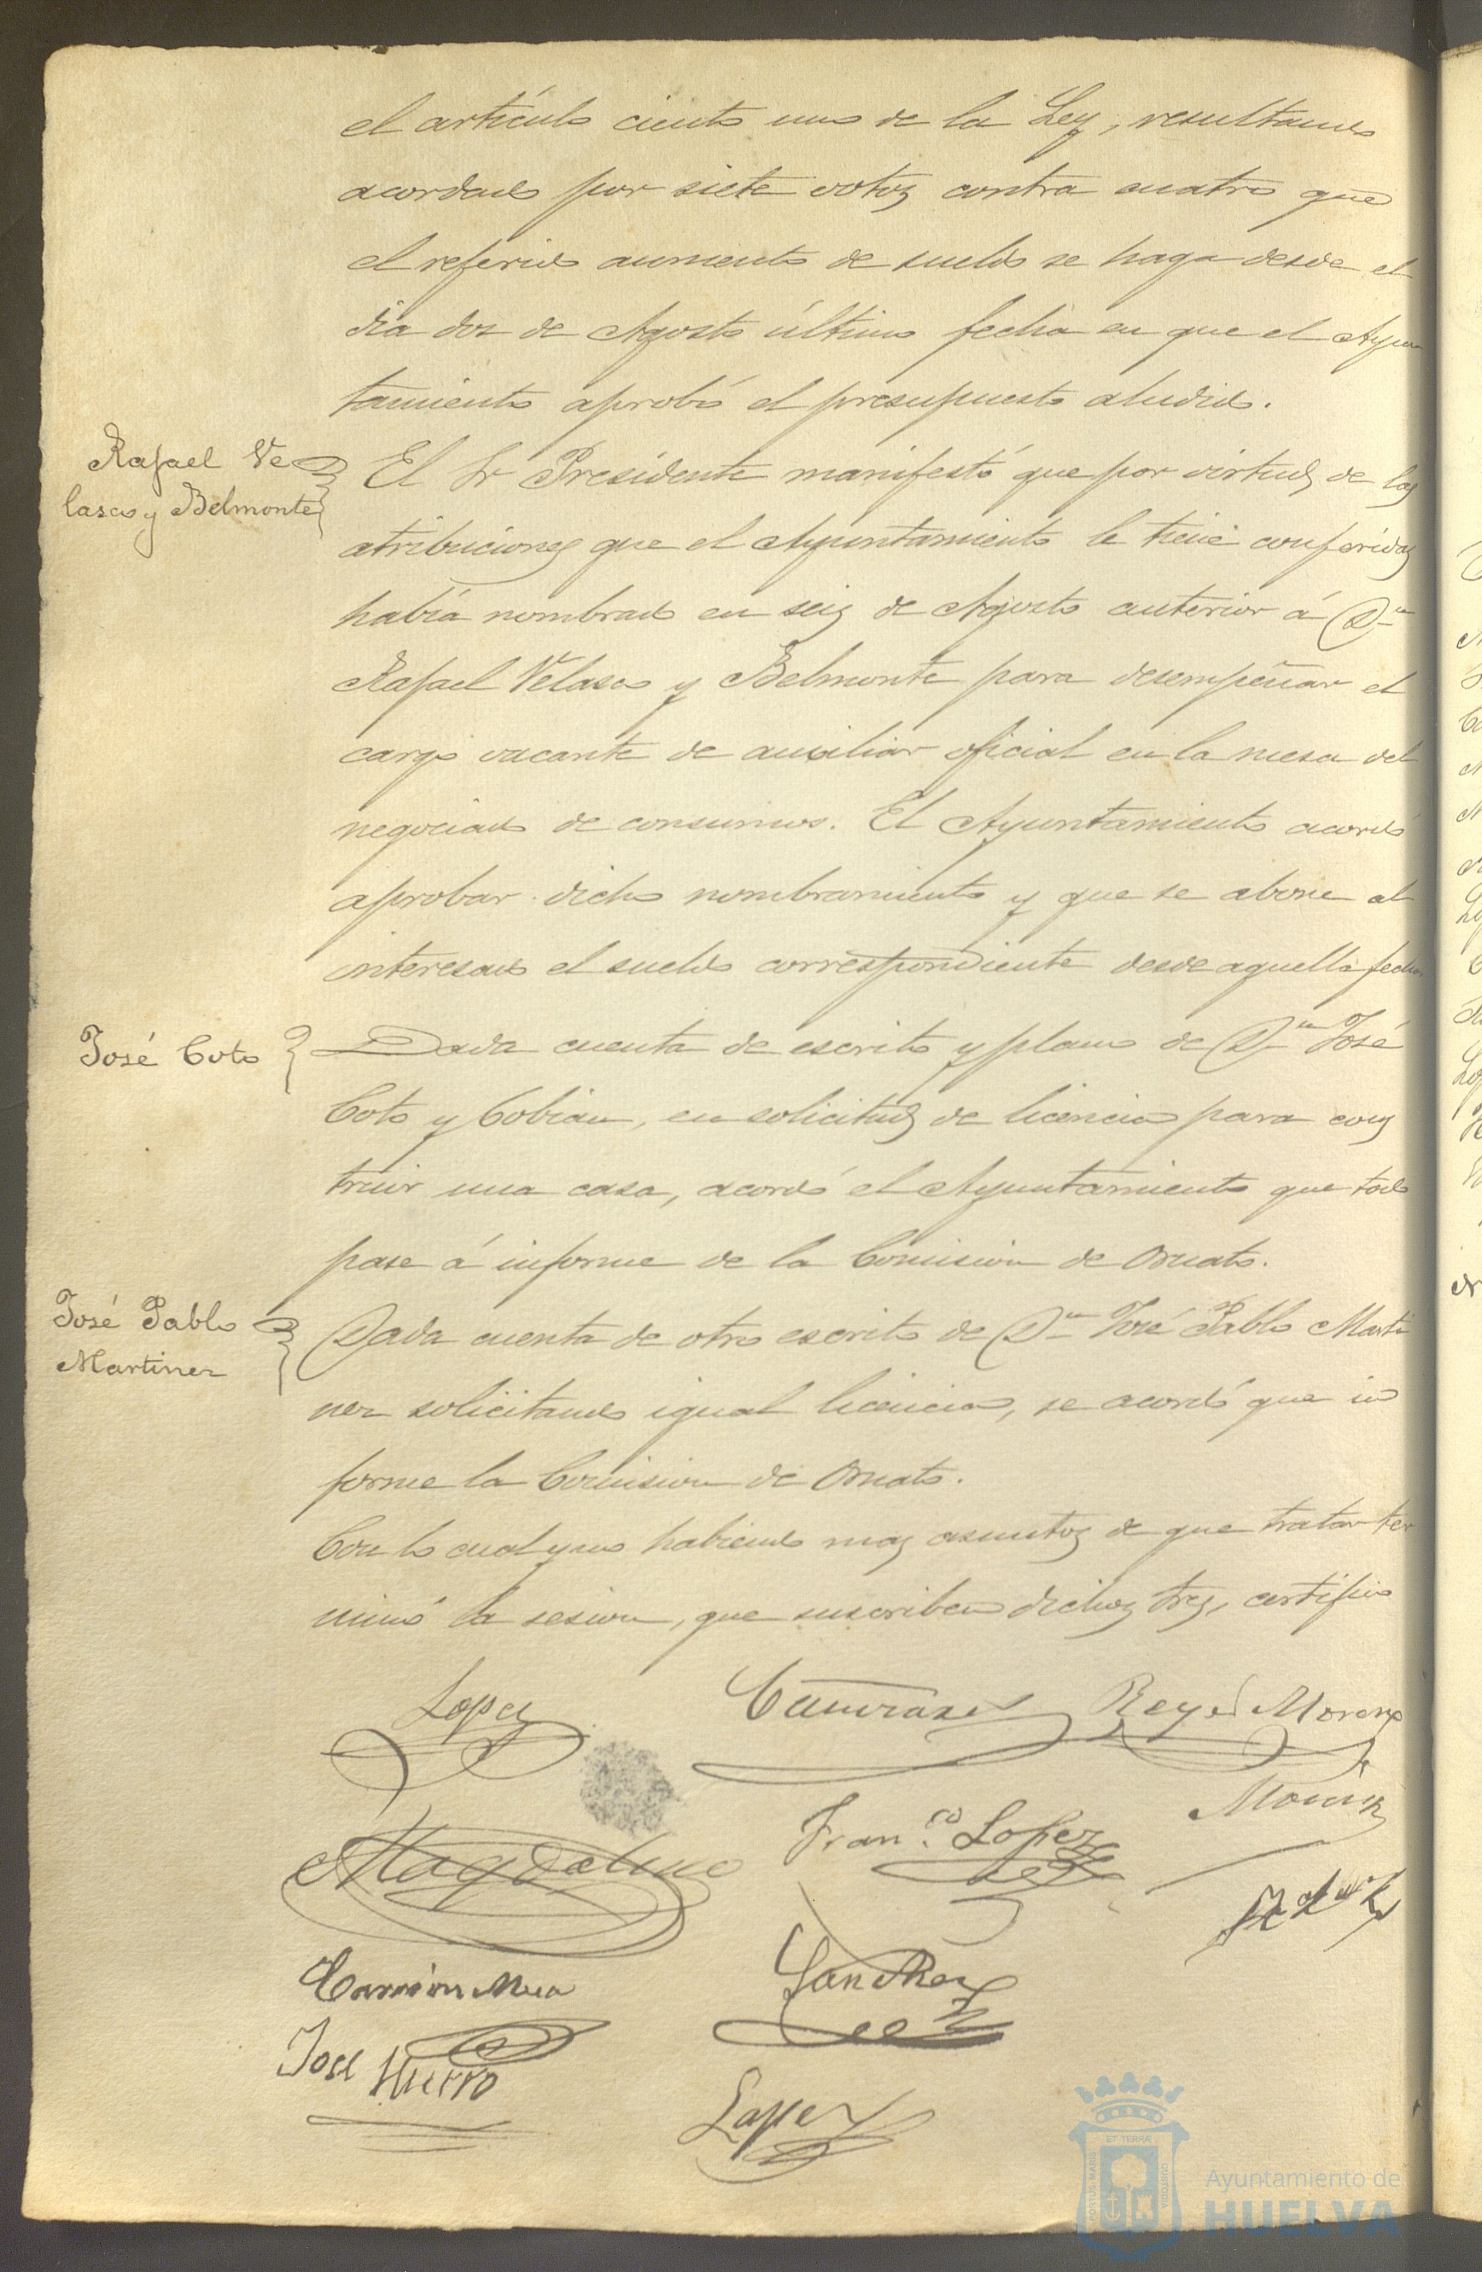 el artículo ciento uno de la Ley, resultando
acordado por siete votos contra cuatro que
el referido aumento de sueldo se haga desde el
dia dos de Agosto último fecha en que el Ayun
tamiento aprobó el presupuesto aludido.
Rafael Ve
lasco y Belmonte
El Sr Presidente manifestó que por virtud de las
atribuciones que el Ayuntamiento le tiene conferidas
había nombrado en seis de Agosto anterior á Dn
Rafael Velasco y Belmonte para desempeñar el
cargo vacante de auxiliar oficial en la mesa del
negociado de consumos. El Ayuntamiento acordó
aprobar dicho nombramiento y que se abone al
interesado el sueldo correspondiente desde aquella fecha
José Coto
Dada cuenta de escrito y plano de Dn José
Coto y Cobian, en solicitud de licencia para cons
truir una casa, acordó el Ayuntamiento que todo
pase á informe de la Comision de Ornato.
José Pablo
Martinez
Dada cuenta de otro escrito de Dn José Pablo Marti
nez solicitando igual licencia, se acordó que in
forme la Comision de Ornato.
Con lo cual y no habiendo mas asuntos de que tratar ter
minó la sesion, que suscriben dichos Sres, certifico
Lopez
Reyes Moreno
Franco. Lopez
Magdaleno
Carrión
Sanchez
José Hierro
Lopez
PORTUS MARIS ET TERRAE CUSTODIA
Ayuntamiento de
HUELVA